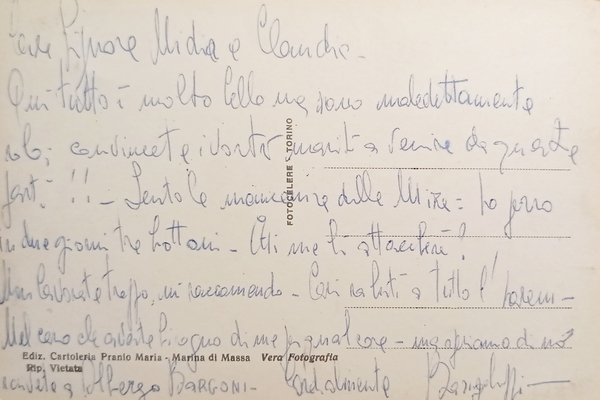 Care Signore Midia e Claudia -
Qui tutto è molto bello ma sono maledettamente
solo; convincete i vostri mariti a venire da queste
parti !! - Sento la mancanza delle Mire = ho perso
in due giorni tre bottoni - Chi me li attaccherà?
Non lavorate troppo, mi raccomando - Cari saluti a tutto l'
Nel caso che aveste bisogno di me per qualcosa - ma speriamo di no
scrivete a Albergo BARGONI - Cordialmente
FOTOCELERE - TORINO
Ediz. Cartoleria Pranio Maria - Marina di Massa Vera Fotografia
Rip. Vietata